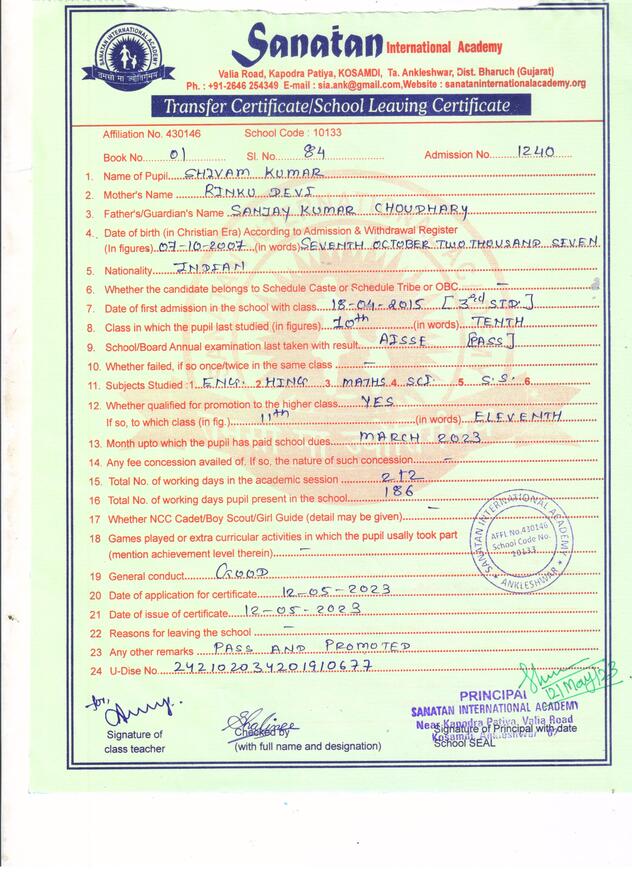 SANATAN INTERNATIONAL ACADEMY
तमसो मा ज्योतिर्गमय
Sanatan International Academy
Valia Road, Kapodra Patiya, KOSAMDI, Ta. Ankleshwar, Dist. Bharuch (Gujarat)
Ph. : +91-2646 254349 E-mail : sia.ank@gmail.com,Website : sanataninternationalacademy.org
Transfer Certificate/School Leaving Certificate
Affiliation No. 430146 School Code : 10133
Book No. 01 Sl. No. 84 Admission No. 1240
1. Name of Pupil SHIVAM KUMAR
2. Mother's Name RINKU DEVI
3. Father's/Guardian's Name SANJAY KUMAR CHOUDHARY
4. Date of birth (in Christian Era) According to Admission & Withdrawal Register
(In figures) 07-10-2007 (in words) SEVENTH OCTOBER TWO THOUSAND SEVEN
5. Nationality INDIAN
6. Whether the candidate belongs to Schedule Caste or Schedule Tribe or OBC. —
7. Date of first admission in the school with class. 18-04-2015 [3rd STD.]
8. Class in which the pupil last studied (in figures). 10th (in words) TENTH
9. School/Board Annual examination last taken with result. AISSE [PASS]
10. Whether failed, if so once/twice in the same class —
11. Subjects Studied : 1. ENG. 2. HING 3. MATHS 4. SCI. 5. S.S. 6.
12. Whether qualified for promotion to the higher class. YES
If so, to which class (in fig.) 11th (in words) ELEVENTH
13. Month upto which the pupil has paid school dues. MARCH 2023
14. Any fee concession availed of. If so, the nature of such concession. —
15. Total No. of working days in the academic session 272
16 Total No. of working days pupil present in the school 186
17 Whether NCC Cadet/Boy Scout/Girl Guide (detail may be given) —
18 Games played or extra curricular activities in which the pupil usally took part
(mention achievement level therein) —
19 General conduct GOOD
20 Date of application for certificate. 12-05-2023
21 Date of issue of certificate. 12-05-2023
22 Reasons for leaving the school —
23 Any other remarks PASS AND PROMOTED
24 U-Dise No. 242102034201910677
SANATAN INTERNATIONAL ACADEMY
AFFL No.430146
School Code No.
10133
ANKLESHWAR
12/May/23
for,
PRINCIPAL
SANATAN INTERNATIONAL ACADEMY
Near Kapodra Patiya, Valia Road
Kosamdi, Ankleshwar
Signature of
class teacher
Shalinee
Checked by
(with full name and designation)
Signature of Principal with date
School SEAL